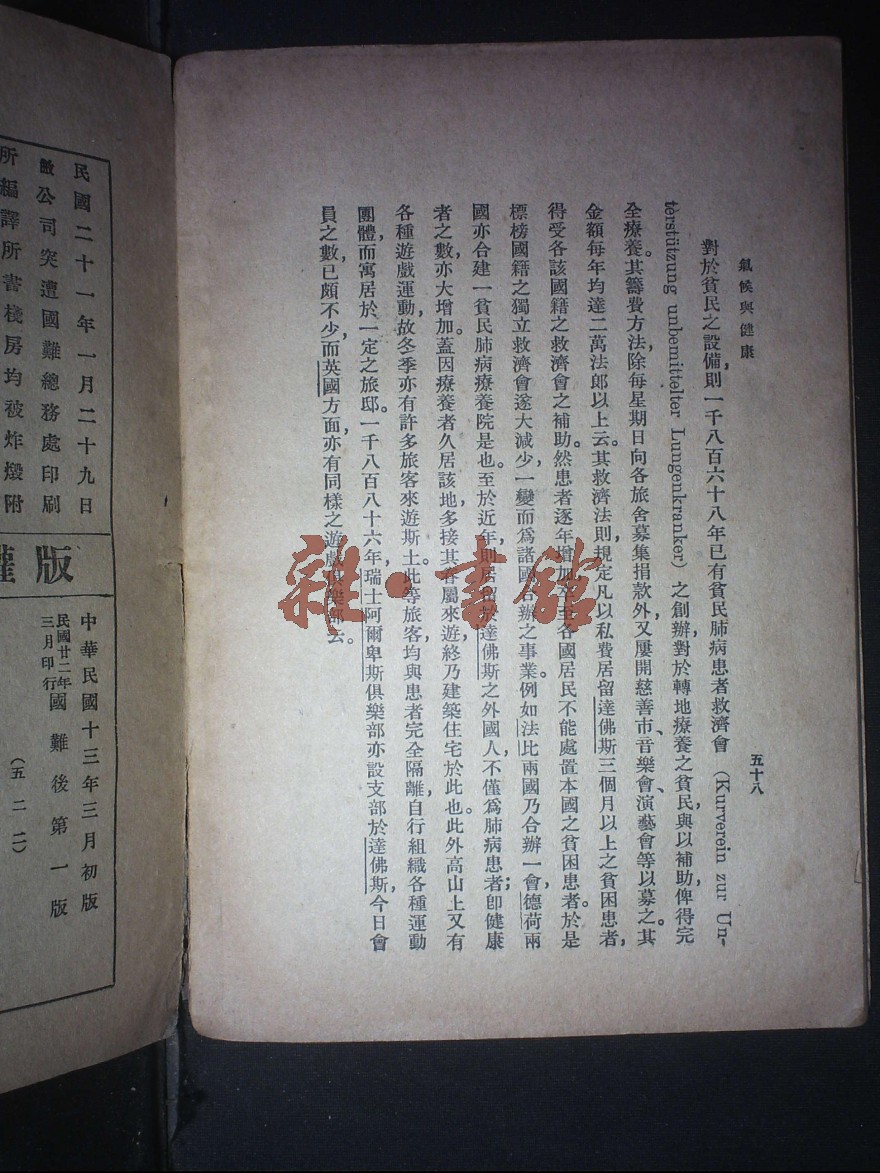 氣候與健康
五十八
對於貧民之設備,則一千八百六十八年已有貧民肺病患者救濟會 (Kurverein zur Un-
terstützung unbemittelter Lungenkranker) 之創辦,對於轉地療養之貧民,與以補助,俾得完
全療養。其籌費方法,除每星期日向各旅舍募集捐款外,又屢開慈善市、音樂會、演藝會等以募之。其
金額每年均達二萬法郎以上云。其救濟法則規定凡以私費居留達佛斯三個月以上之貧困患者,
得受各該國籍之救濟會之補助。然患者逐年增加,至各國居民不能處置本國之貧困患者。於是
標榜國籍之獨立救濟會遂大減少,一變而爲諸國合辦之事業。例如法比兩國乃合辦一會,德荷兩
國亦合建一貧民肺病療養院是也。至於近年,則居留於達佛斯之外國人,不僅爲肺病患者;卽健康
者之數,亦大增加。蓋因療養者久居該地,多接其眷屬來遊,終乃建築住宅於此也。此外高山上又有
各種遊戲運動,故冬季亦有許多旅客來遊斯土。此等旅客,均與患者完全隔離,自行組織各種運動
團體,而寓居於一定之旅邸。一千八百八十六年,瑞士阿爾卑斯俱樂部亦設支部於達佛斯,今日會
員之數,已頗不少,而英國方面,亦有同樣之遊戲俱樂部云。
雜·書館
民國二十一年一月二十九日
敝公司突遭國難總務處印刷
所編譯所書棧房均被炸燬附
版權
中華民國十三年三月初版
民國廿二年三月印行國難後第一版
(五二二)